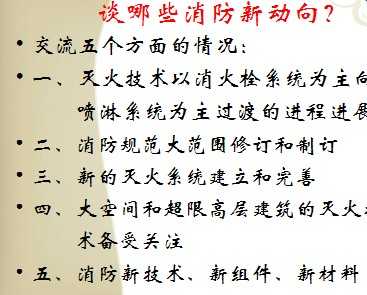 谈哪些消防新动向？
• 交流五个方面的情况：
• 一、灭火技术以消火栓系统为主向
喷淋系统为主过渡的进程进展
• 二、消防规范大范围修订和制订
• 三、新的灭火系统建立和完善
• 四、大空间和超限高层建筑的灭火
术备受关注
• 五、消防新技术、新组件、新材料